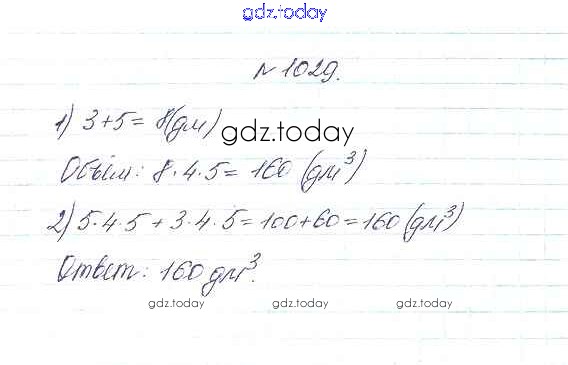 gdz.today
№ 1029.
1) 3+5= 8(дм)
gdz.today
Объём: 8·4·5= 160 (дм³)
2) 5·4·5 + 3·4·5=100+60=160 (дм³)
Ответ: 160 дм³.
gdz.today gdz.today gdz.today